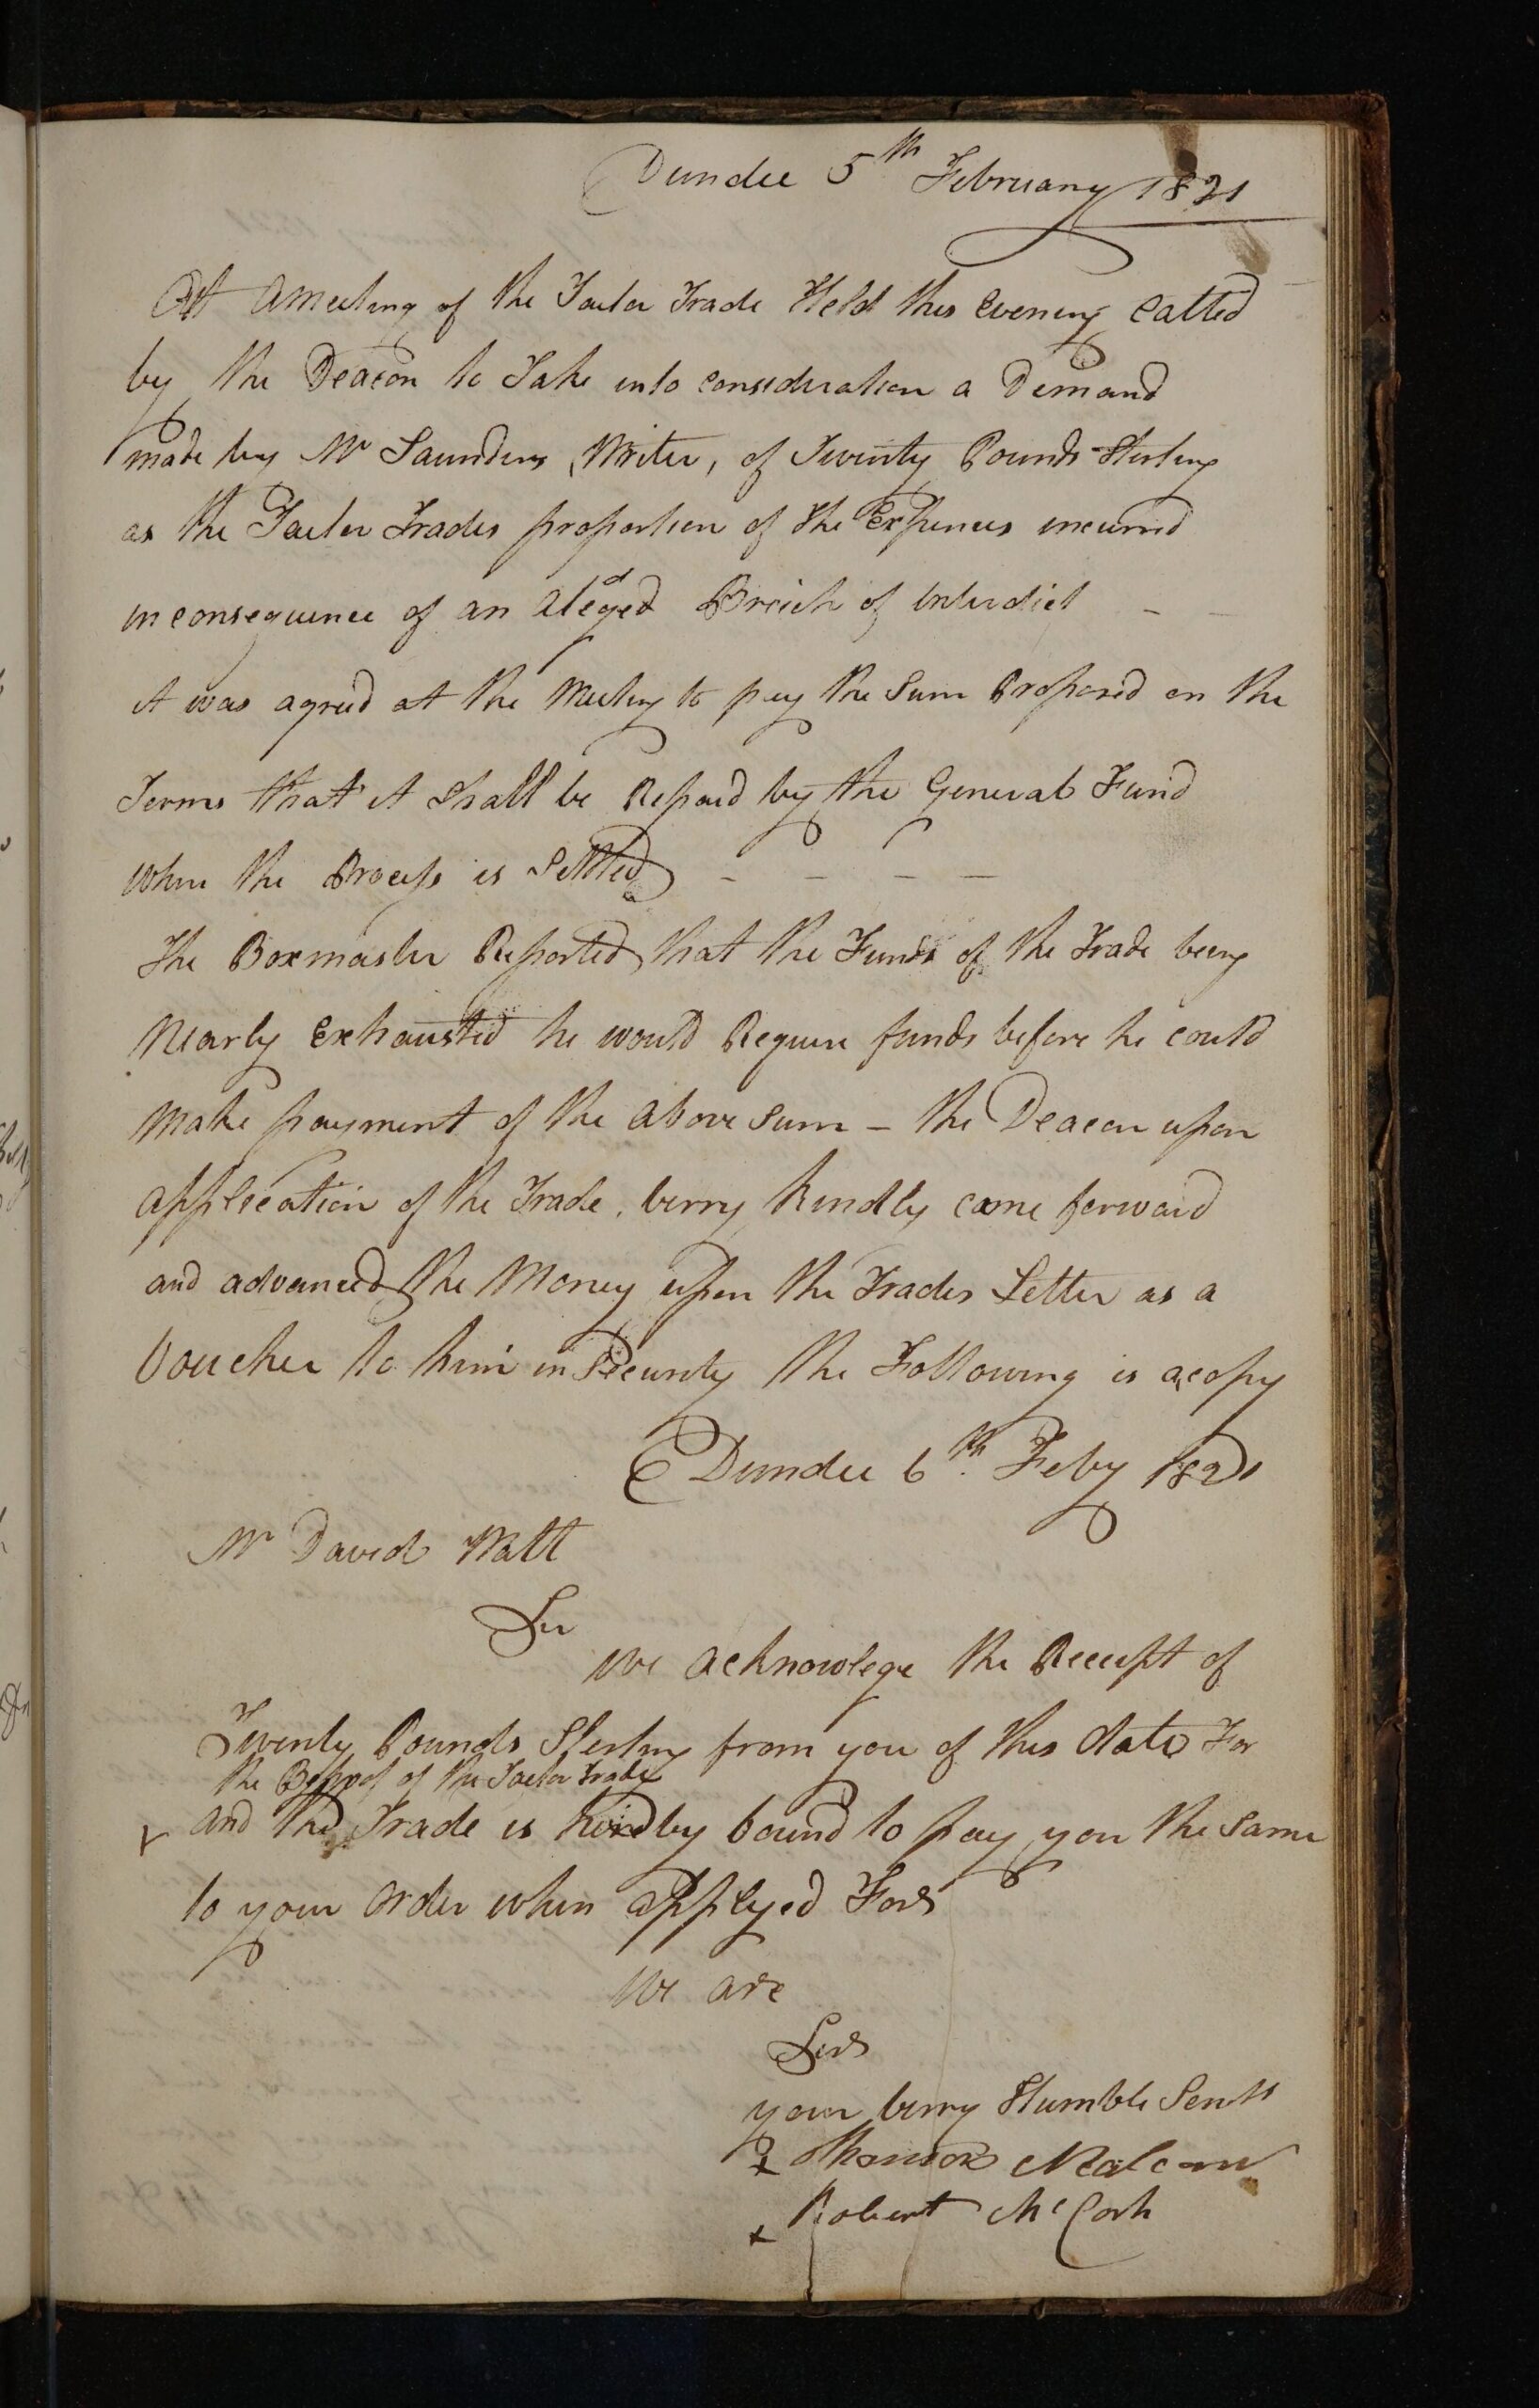 Dundee 5th February 1821
At ameeting of the Tailor Trade Held this Evening Called
by the Deacon to Take into consideration a Demand
made by Mr Saunders, Writer, of Twenty Pounds Sterling
as the Tailor Trades proportion of the Expences incurred
in consequence of an aleged Breich of Interdict - -
it was agreed at the Meeting to pay the Sum Proposed on the
Terms that it Shall be Repaid by the General Fund
when the Process is Settled - - - -
The Boxmaster Reported that the Funds of the Trade being
Nearly Exhausted he would Require funds before he could
Make payment of the above Sum - the Deacon upon
application of the Trade, verry kindly came forward
and advanced the Money upon the Trades Letter as a
Voucher to him in Security the Following is a copy
Dundee 6th Feby 1821
Mr David Watt
Sir
We acknowlege the Receipt of
Twenty Pounds Sterling from you of this date For
the Behoof of the Tailor Trade
and the Trade is hereby bound to pay you the Same
to your order when applyed For
We are
Sir
your verry Humble Servts
Thomas Malcom
Robert McCosh